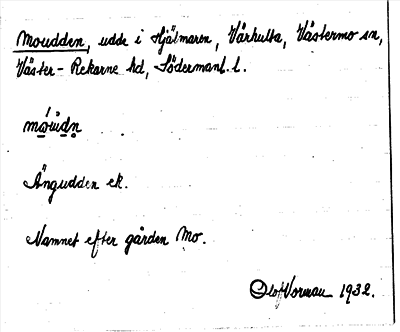 Moudden, udde i Hjälmaren, Vårhulta, Västermo sn,
Väster-Rekarne hd, Södermanl. l.
mo̱u̇dṇ
Ängudden ek.
Namnet efter gården Mo.
Olof Vorman 1932.